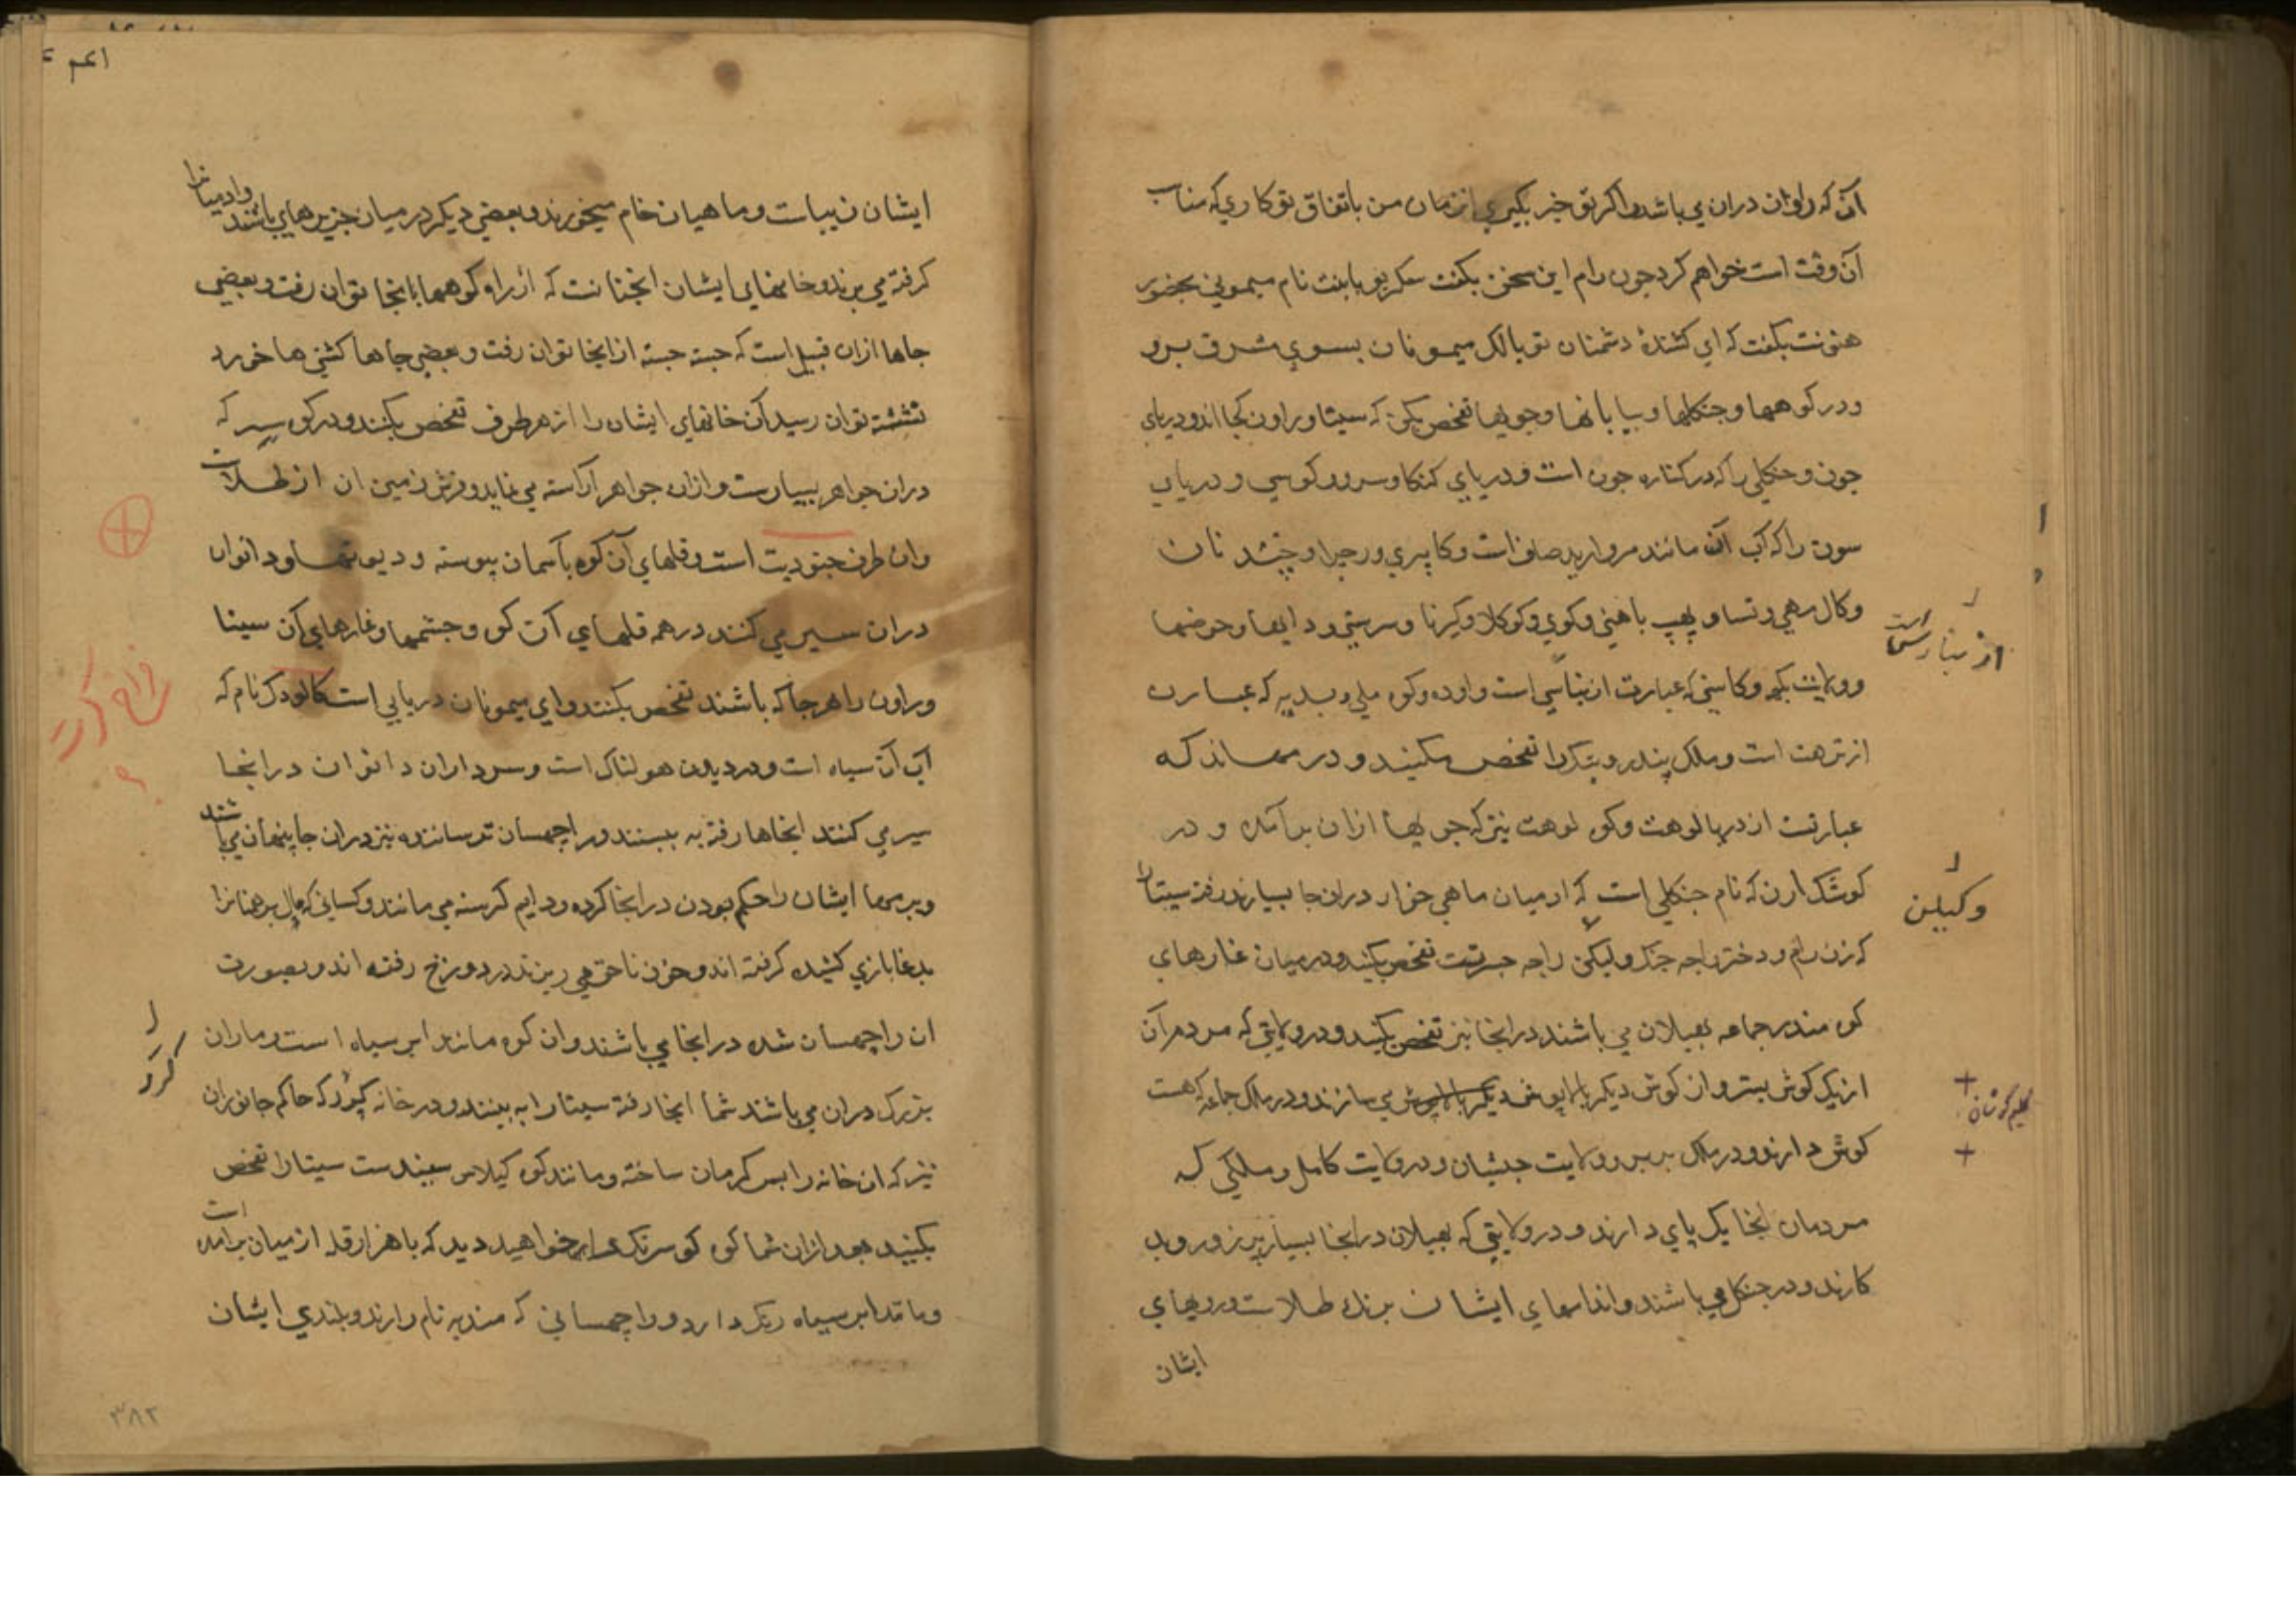 آن که راون دران می باشد و اکر تو خبر بکیری از زمان من باتفاق تو کاری که مناسب
آن وقت است خواهم کرد چون رام این سخن بکفت سکریو بابنت نام میمونی بحضور
هنونت بکفت که ای کشندهٔ دشمنان تو بالک میمونان بسوی شرق برو
و در کوهها و جنکلها و بیابانها و جویها تفحص بکن که سیتا و راون کجا اند و دریای
جون و جنکلی را که در کناره جون است و دریای کنکا و سرو و کوسی و دریای
سون را که آب آن مانند مروارید صاف است و
و کال مهی و
و ولایت و کاسی که عبارت از بنارسی است و اوده و کوه
از ترهت است و ملک را تفحص بکنید و در که
عبارتست از دریا لوهت و کوه لوهت نیز که جویها ازان برآمده و در
کوشکارن که نام جنکلی است که ادمیان ماهی خوار دران جا بسیارند رفته سیتا را
که زن رام و دختر راجه جنک و لیکن راجه جسرتست تفحص بکنید و درمیان غارهای
کوه مندر جماعه بهیلان می باشند درانجا نیز تفحص بکنید و در ولایتی که مردم آن
از یک کوش بستر و از کوش دیکر بالاپوش می سازند و در ملک جماعه که هست
کوش دارند و در ملک بربر و ولایت حبشیان و در ولایت کامل و ملکی که
مردمان انجا یک پای دارند و در ولایتی که بهیلان درانجا بسیار پرزور و بد
کارند و در جنکل می باشند و اندامهای ایشان برنک طلاست و رویهای
ایشان
از بنارس است
وکیلن
کلیم کوشان
ایشان زیباست و ماهیان خام میخورند و بعضی دیکر درمیان جزیرهای باشند و ادمیانرا
کرفته می برند و خانهای ایشان انچنانست که از راه کوهها بانجا توان رفت و بعضی
جاها ازان قبیل است که جسته جسته ازانجا توان رفت و بعضی جاها کشتیها خورد
نشسته توان رسید آن خانهای ایشان را از هر طرف تفحص بکنند و در کوه که
دران جواهر بسیارست و ازان جواهر آراسته می نماید و فرش زمین ان از طلاست
و ان طرف جنودیت است و قلهای آن کوه باسمان پیوسته و دیوتها و دانوان
دران سیر می کنند در همه قلهای آن کوه و چشمها و غارهای آن سیتا
و راون را هر جا که باشند تفحص بکنند و ای میمونان دریایی است کالودک نام که
آب آن سیاه است و هولناک است و سرداران دانوان درانجا
سیر می کنند انجاها رفته به بینند و راچهسان ترساننده نیز دران جا پنهان می باشند
و برهما ایشان را حکم بودن درانجا کرده و دایم کرسنه می مانند و کسانی که مال برهمنانرا
بدغابازی کشیده کرفته اند و خون ناحق می ریزند در دوزخ رفته اند و بصورت
ان راچهسان شده درانجا می باشند و ان کوه مانند ابر سیاه است و ماران
بزرک دران می باشند شما انجا رفته سیتا را به بینند و در خانه کرر که حاکم جانوران
نیز که ان خانه را بسکرمان ساخته و مانند کوه کیلاس سپیدست سیتا را تفحص
بکنید بعد ازان شما کوه خواهید دید که با هزار قله از میان برامده است
و مانند ابر سیاه رنک دارد و راچهسانی که مندیه نام دارند و بلندی ایشان
کرر
۳۸۲